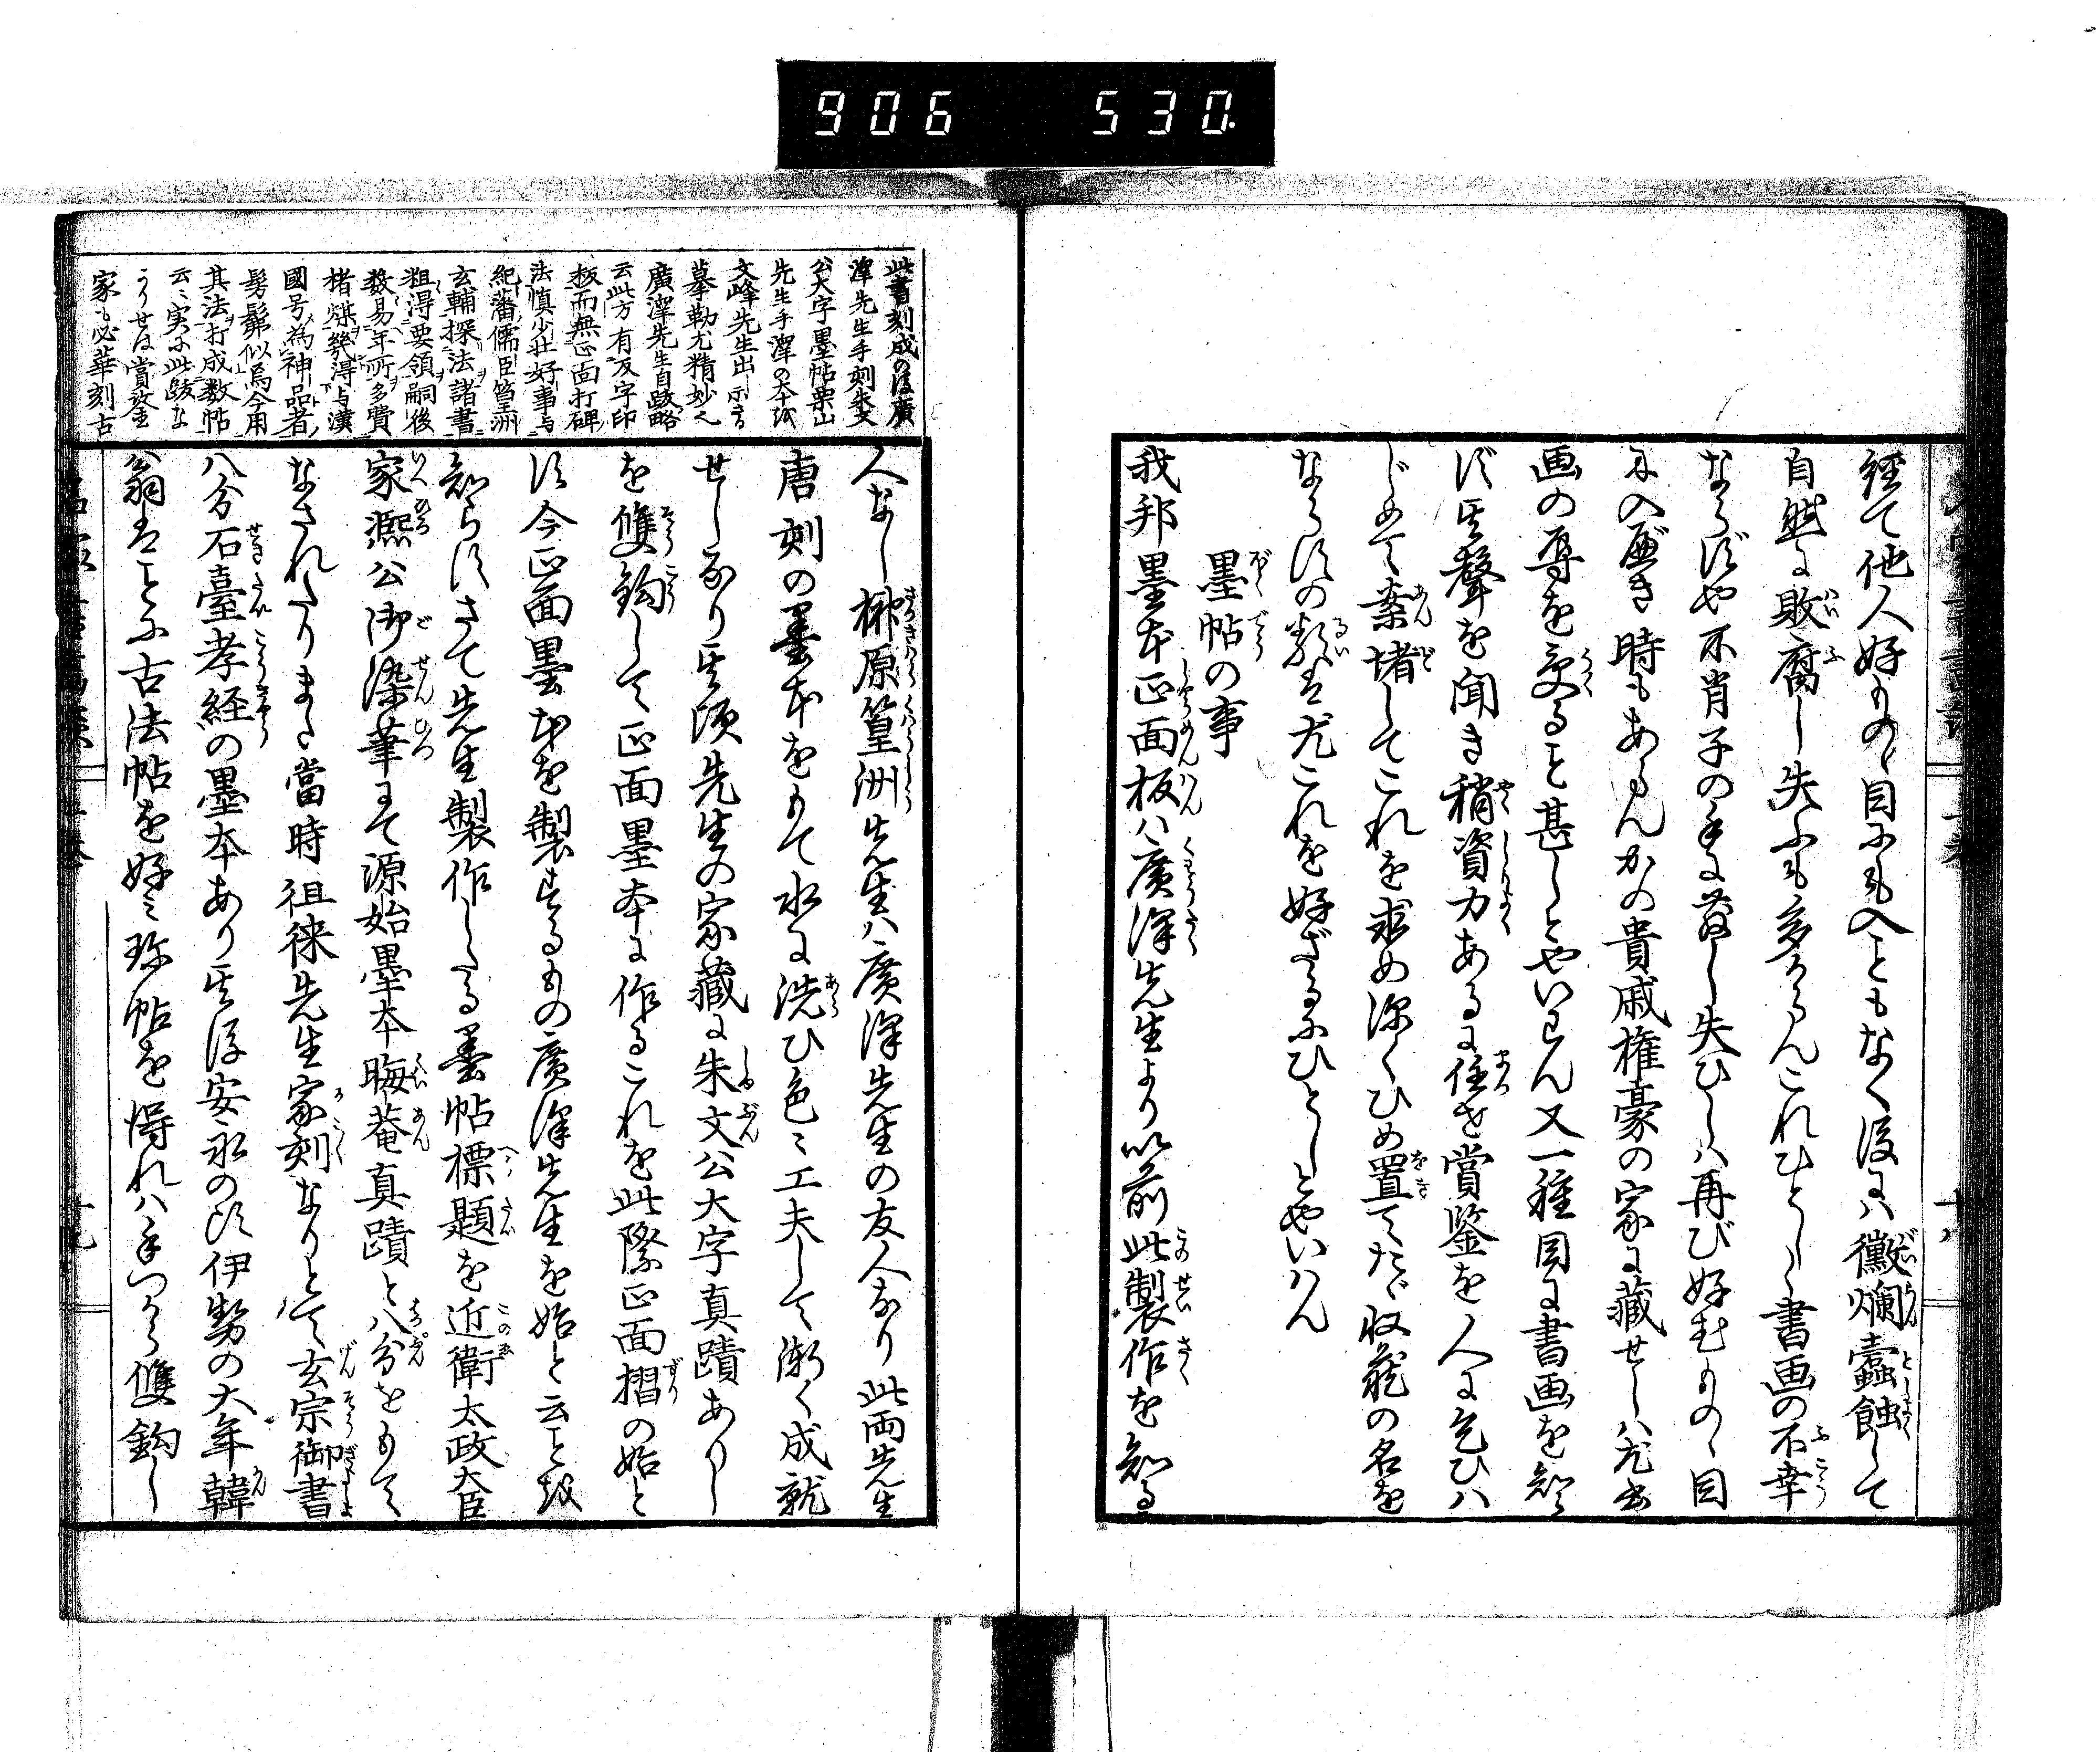 906 530
経て他人好ものゝ目にも入ともなく後にハ黴爛蠹蝕して
自然に敗腐し失ふも多からんこれひとしく書画の不幸
ならずや不肖子の手に落し失ひしハ再び好むものゝ目
に入べき時もあらんかの貴戚権豪の家に蔵せしハ尤書
画の辱を受ること甚しとやいはん又一種目に書画を知ら
ず其聲を聞き稍資力あるに任せ賞鑒を人に乞ひハ
じめて案堵してこれを求め深くひめ置てたゞ収蔵の名を
ならすの類は尤これを好ざるにひとしとやいハん
墨帖の事
我邦墨本正面板ハ廣澤先生より以前此製作を知る
此書刻成のは廣
澤先生手刻朱文
公大字墨帖栗山
先生手澤の本は
文峰先生出し示さる
摹勒尤精妙也
廣澤先生自跋略
云此方有反字印
板而無正面打碑
法慎少壮好事与
紀藩儒臣篁洲
玄輔探法諸書
粗得要領嗣後
数易年所多費
楮煤幾得与漢
國号為神品者
髣髴似焉今用
其法打成数帖
云〻実に此跋な
かりせは賞鉴
家も必華刻古
人なし榊原篁洲先生ハ廣澤先生の友人なり此両先生
唐刻の墨本をもて水に洗ひ色〻工夫して漸く成就
せしなり其頃先生の家蔵に朱文公大字真蹟ありし
を雙鈎して正面墨本に作るこれを此際正面摺の始と
す今正面墨本を製するもの廣澤先生を始と云ことを
知らすさて先生製作したる墨帖標題を近衛太政大臣
家熈公御染筆にて源始墨本晦菴真蹟と八分をもて
なされたりまた當時徂徠先生家刻なりとて玄宗御書
八分石臺孝経の墨本あり其後安永の頃伊勢の大年韓
翁はことに古法帖を好み珍帖を得れハ手つから雙鈎し